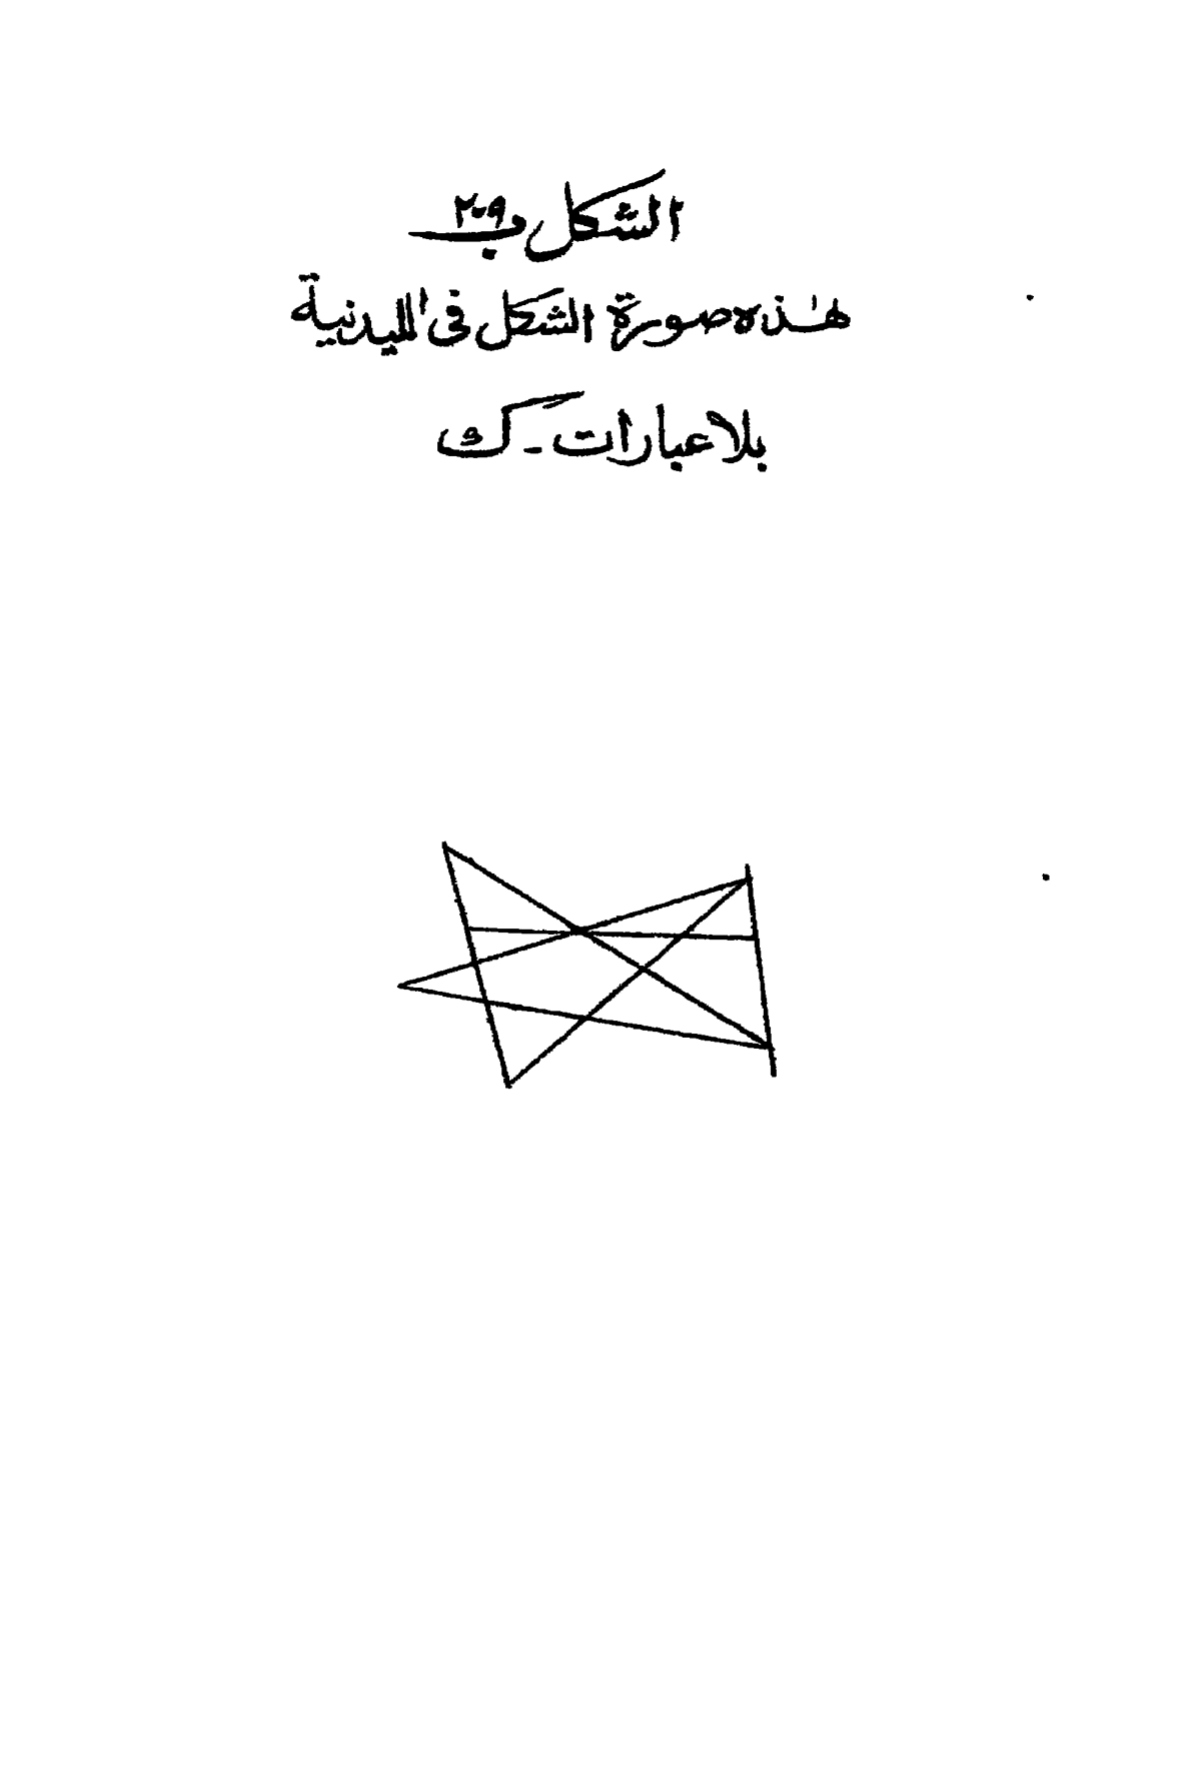 الشكل ب ٢٠٩
هٰذه صورة الشكل فى الميدنية
بلا عبارات - ك